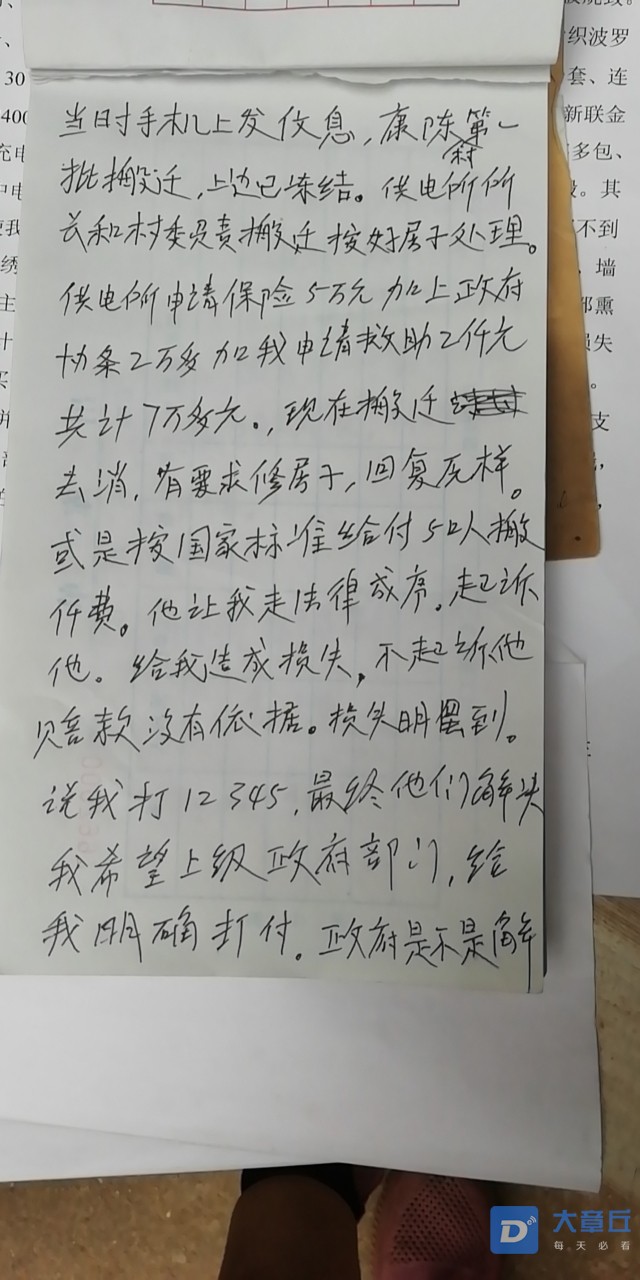 当时手机上发信息，康陈村第一
批搬迁，上边已冻结。供电所所
长和村委负责搬迁按好房子处理。
供电所申请保险5万元加上政府
协条2万多加我申请救助2仟元
共计7万多元。，现在搬迁
去消，有要求修房子，回复原样。
或是按国家标准给付5口人搬
仟费。他让我走法律成序。起诉
他。给我造成损失，不起诉他
赔款没有依据。损失明里到。
说我打12345，最终他们解决
我希望上级政府部门，给
我明确打付。政府是不是解
织波罗
套、连
新联金
多包、
其
不到
墙
损失
支
30
400
充电
大章丘
每天必看